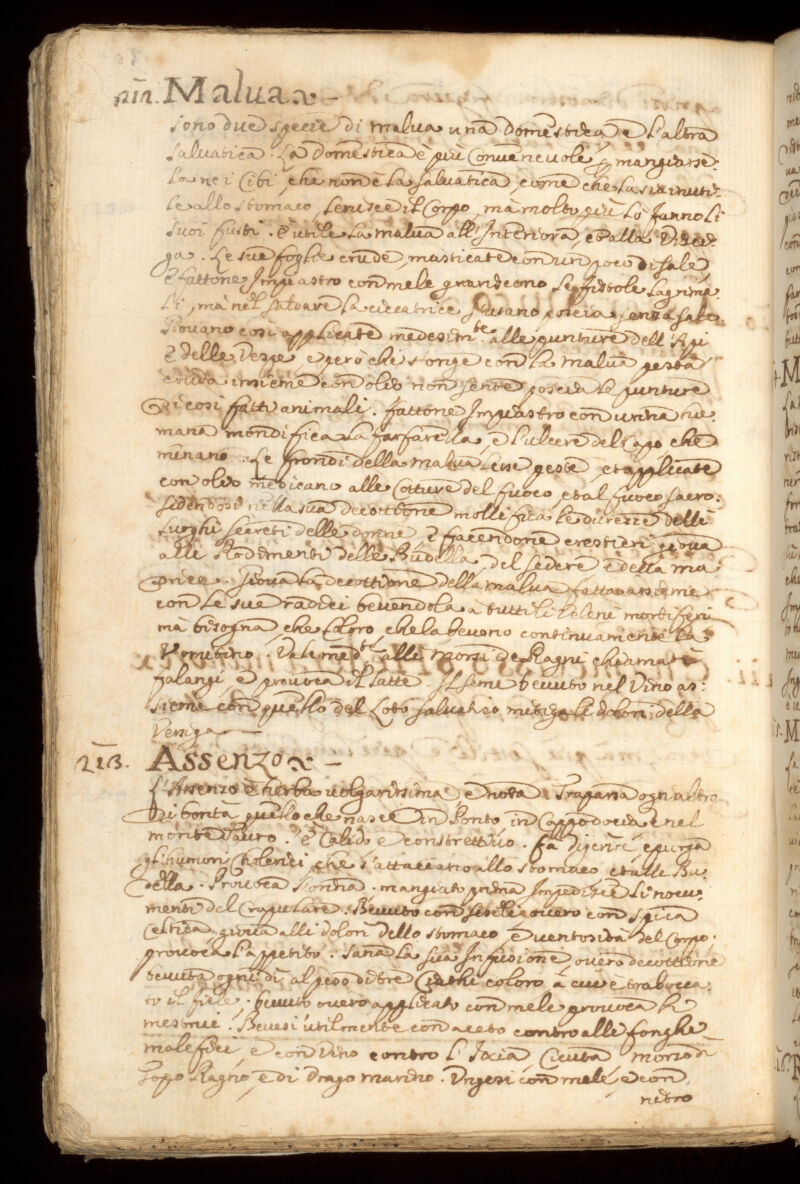 212. Malua
Sono due specie di malua una domestica e l'altra
saluatica. La domestica è più conueneuole p mangiarse
la nei cibi, che non è la saluatica, come che la sia inuti-
le allo stomaco, lenisce il corpo, ma molto più lo fanno li
suoi fusti. È utile la malua all'interiora, et alla uesci-
ga. Le sue foglie crude, masticate con un poco di sale
e fattone impiastro con mele guariscono le fistole lagrima
li, ma nel saldare la ciccatrice s'usano poscia senza sale.
Giouano così applicate medesim.te alle punture dell'Api
e delle Vespe, e però chi s'onge con la malua pesta
cruda insieme con olio non sente poscia le punture
di così fatti animali. fattone Impiastro con urina hu-
mana mondifica la farfarella, e l'ulcere del capo che
menano. Le frondi della malua lesse peste, et applicate
con olio medicano alle cotture del fuoco, et al fuoco sacro.
sedendosi nella sua decottione mollifica le durezze delli
luoghi secreti delle donne, e facendone crestieri gioua
alli rodimenti delle Budella, del sedere e della ma
trice. Gioua la decottione della malua fatta assieme
con le sue radici beuendola a tutti li ueleni mortiferi
ma bisogna, che coloro, che la beueno continuamente la
uomitino. Vale med.te alli morsi de Ragni chiamati
falangi e prouoca il latte. Il seme beuuto nel Vino as:
sieme con quello del Loto saluatico mitiga li dolori della
Vesiga
213. Assenzo
L'Assenzo è herba uolgarissima, e nota. Trapassa ogni altro
di bontà quello che nasce in Ponto in Cappodocia e nel
monte Tauro. È Calido e constrettiuo. fà digerire, e purga
gl'humori cholerici che s'attaccano allo stomaco et alle Bu-
della. Prouoca l'orina. mangiato prima Impedisce li nocu-
menti del Crapulare. Beuuto con seseli ouero con spica
celtica, gioua alli dolori dello stomaco, e uentosità del corpo.
prouoca l'appetito. Sana la sua Infusione ouero decottione
beuuta ogni dì, al peso di tre Ciathi coloro, a cui è trabocca
to il fiele. beuuto ouero applicato con mele prouoca li
mestrui. Beuesi utilmente con aceto contro alli fonghi
malefici, e con Vino contro l'Ixia, Cicuta, morso di
Topo Ragno, e di Drago marino. Ungesi con mele, e con
nitro